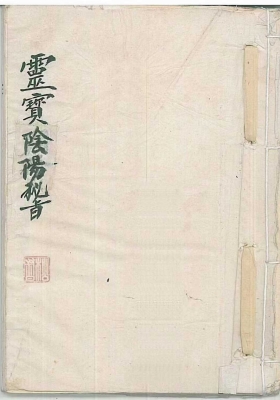 靈寳陰陽秘旨